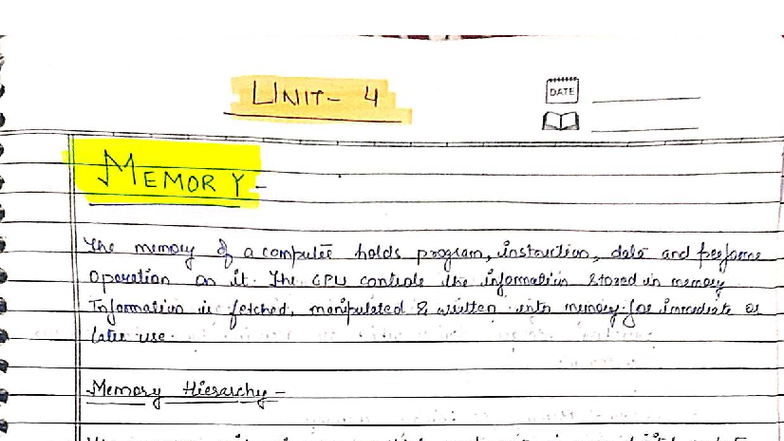 UNIT- 4
DATE
MEMORY -
The memory of a computer holds program, instruction, data and perform
operation on it. The CPU controls the information stored in memory
Information is fetched, manipulated & written into memory for immediate or
later use.
Memory Hierarchy -